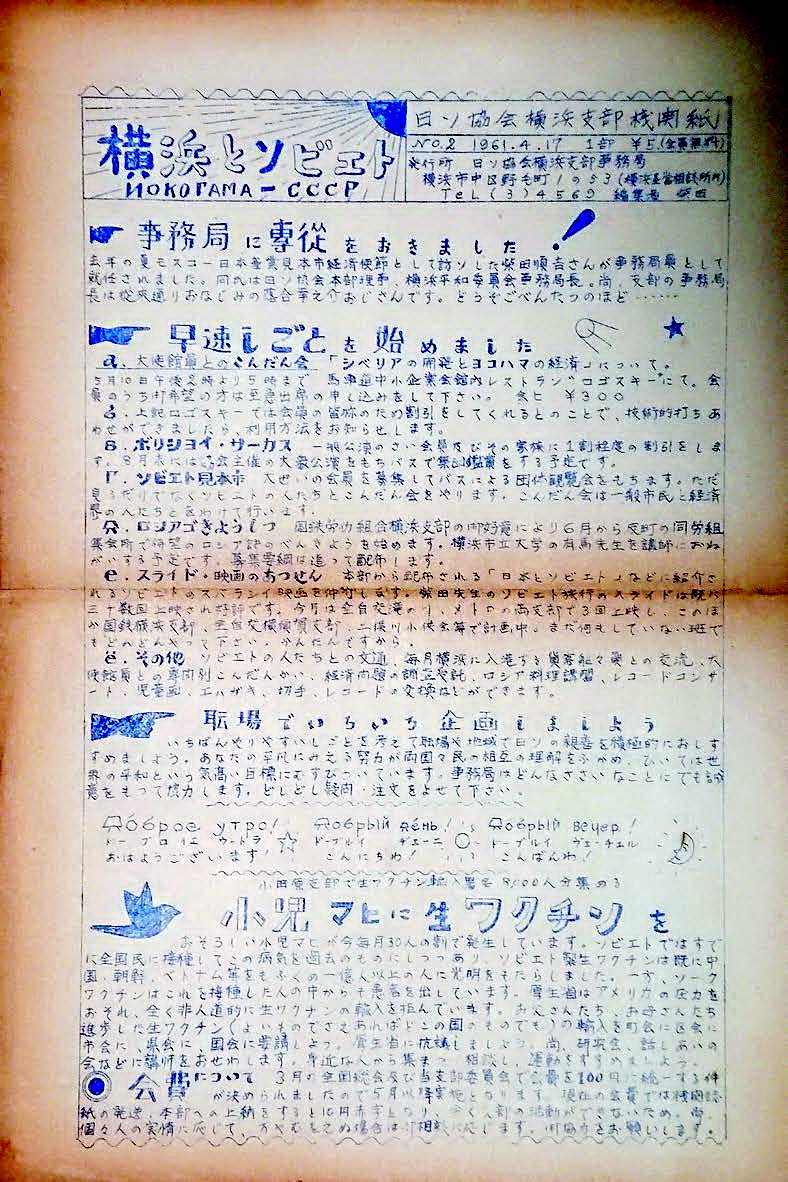 日ソ協会横浜支部機関紙
横浜とソビエト
ИОКОГАМА－СССР
No.2 1961.4.17 1部 ¥5(会員無料)
発行所 日ソ協会横浜支部事務局
横浜市中区野毛町1の53
TEL(3)4569 編集者 柴田
事務局に専従をおきました!
去年の夏モスコー日本産業見本市経済使節として訪ソした柴田順吉さんが事務局員として
就任されました。同氏は日ソ協会本部理事、横浜平和委員会事務局長。尚、支部の事務局
長は従来通りおなじみの落合幸之介おじさんです。どうぞごべんたつのほど……
早速しごとを始めました
а. 大使館員とのこんだん会 「シベリアの開発とヨコハマの経済」について。
5月10日午後2時より5時まで 馬車道中小企業会館内レストラン"ロゴスキー"にて。会
員のうち御希望の方は至急出席の申し込みをして下さい。 会ヒ ¥300
б. 上記ロゴスキーでは会員の皆称のため割引をしてくれるとのことで、技術的打ちあ
わせができましたら、利用方法をお知らせします。
в. ボリショイ・サーカス 一般公演のさい会員及びその家族に1割程度の割引をしま
す。8月末には当会主催の大衆公演をもちバスで集団鑑賞をする予定です。
г. ソビエト見本市 大せいの会員を募集してバスによる団体観覧会をもちます。ただ
見るだけでなくソビエトの人たちとこんだん会をやります。こんだん会は一般市民と経済
界の人たちとをわけて行います。
д. ロシアゴきょうしつ 国鉄労仂組合横浜支部の御好意により6月から反町の同労組
集会所で待望のロシア語のべんきょうを始めます。横浜市立大学の有馬先生を講師におね
がいする予定です。募集要綱は追って配布します。
е. スライド・映画のあっせん 本部から配布される「日本とソビエト」などに紹介さ
れるソビエトのスバラシイ映画を仲介します。柴田先生のソビエト旅行のスライドは既に
三十数回上映され好評です。今月は全自交滝のり、メトロの両支部で3回上映し、このほ
か国鉄横浜支部、全自交横須賀支部、二俣川小供会等で計画中。まだ何もしていない班で
もどんどんやって下さい。かんたんですから。
ё. その他 ソビエトの人たちとの文通、毎月横浜に入港する貨客船々員との交流、大
使館員との専門別こんだんかい、経済問題の調査受託、ロシア料理講習、レコードコンサ
ート、児童画、エハガキ、切手、レコードの交換などができます。
職場でいろいろ企画しましょう
いちばんやりやすいしごとを考えて職場や地域で日ソの親善を積極的におしす
すめましょう。あなたの平凡にみえる努力が両国々民の相互の理解をふかめ、ひいては世
界の平和という気高い目標にむすびついています。事務局はどんなささいなことにでも誠
意をもって協力します。どしどし疑問・注文をよせて下さい。
Доброе утро! Добрый день! Добрый вечер!
ドーブロイエ ウートラ ドーブルイ ヂェーニ ドーブルイ ヴェーチェル
おはようございます! こんにちわ! こんばんわ!
小田原支部で生ワクチン輸入署名 8,000人分集める
小児マヒに生ワクチンを
おそろしい小児マヒが今毎月30人の割で発生しています。ソビエトではすで
に全国民に接種してこの病気を過去のものにしつつあり、ソビエト製生ワクチンは既に中
国、朝鮮、ベトナム等をもふくめ一億人以上の人に光明をもたらしました。一方、ソーク
ワクチンはこれを接種した人の中からも患者を出しています。厚生省はアメリカの圧力を
おそれ、全く非人道的に生ワクチンの輸入を拒んでいます。お父さんたち、お母さんたち
進歩した生ワクチン(よいものでさえあればどこの国のものでも)の輸入を町会に区会に
市会に、県会に、国会に要請しよう。厚生省に抗議しましょう。尚、研究会、話しあいの
会などに講師をおせわします。身近な人から集まって相談し、運動をすすめましょう。
会費について 3月の全国総会及び当支部委員会で会費を100円に統一する件
が決められましたので5月以降実施となります。現在の会費では機関誌
紙の発送、本部への上納をすると10円赤字となり、全く支部の活動ができないため。尚、
個々人の実情に応じて、やむをえぬ場合は御相談に応じます。御協力をお願いします。